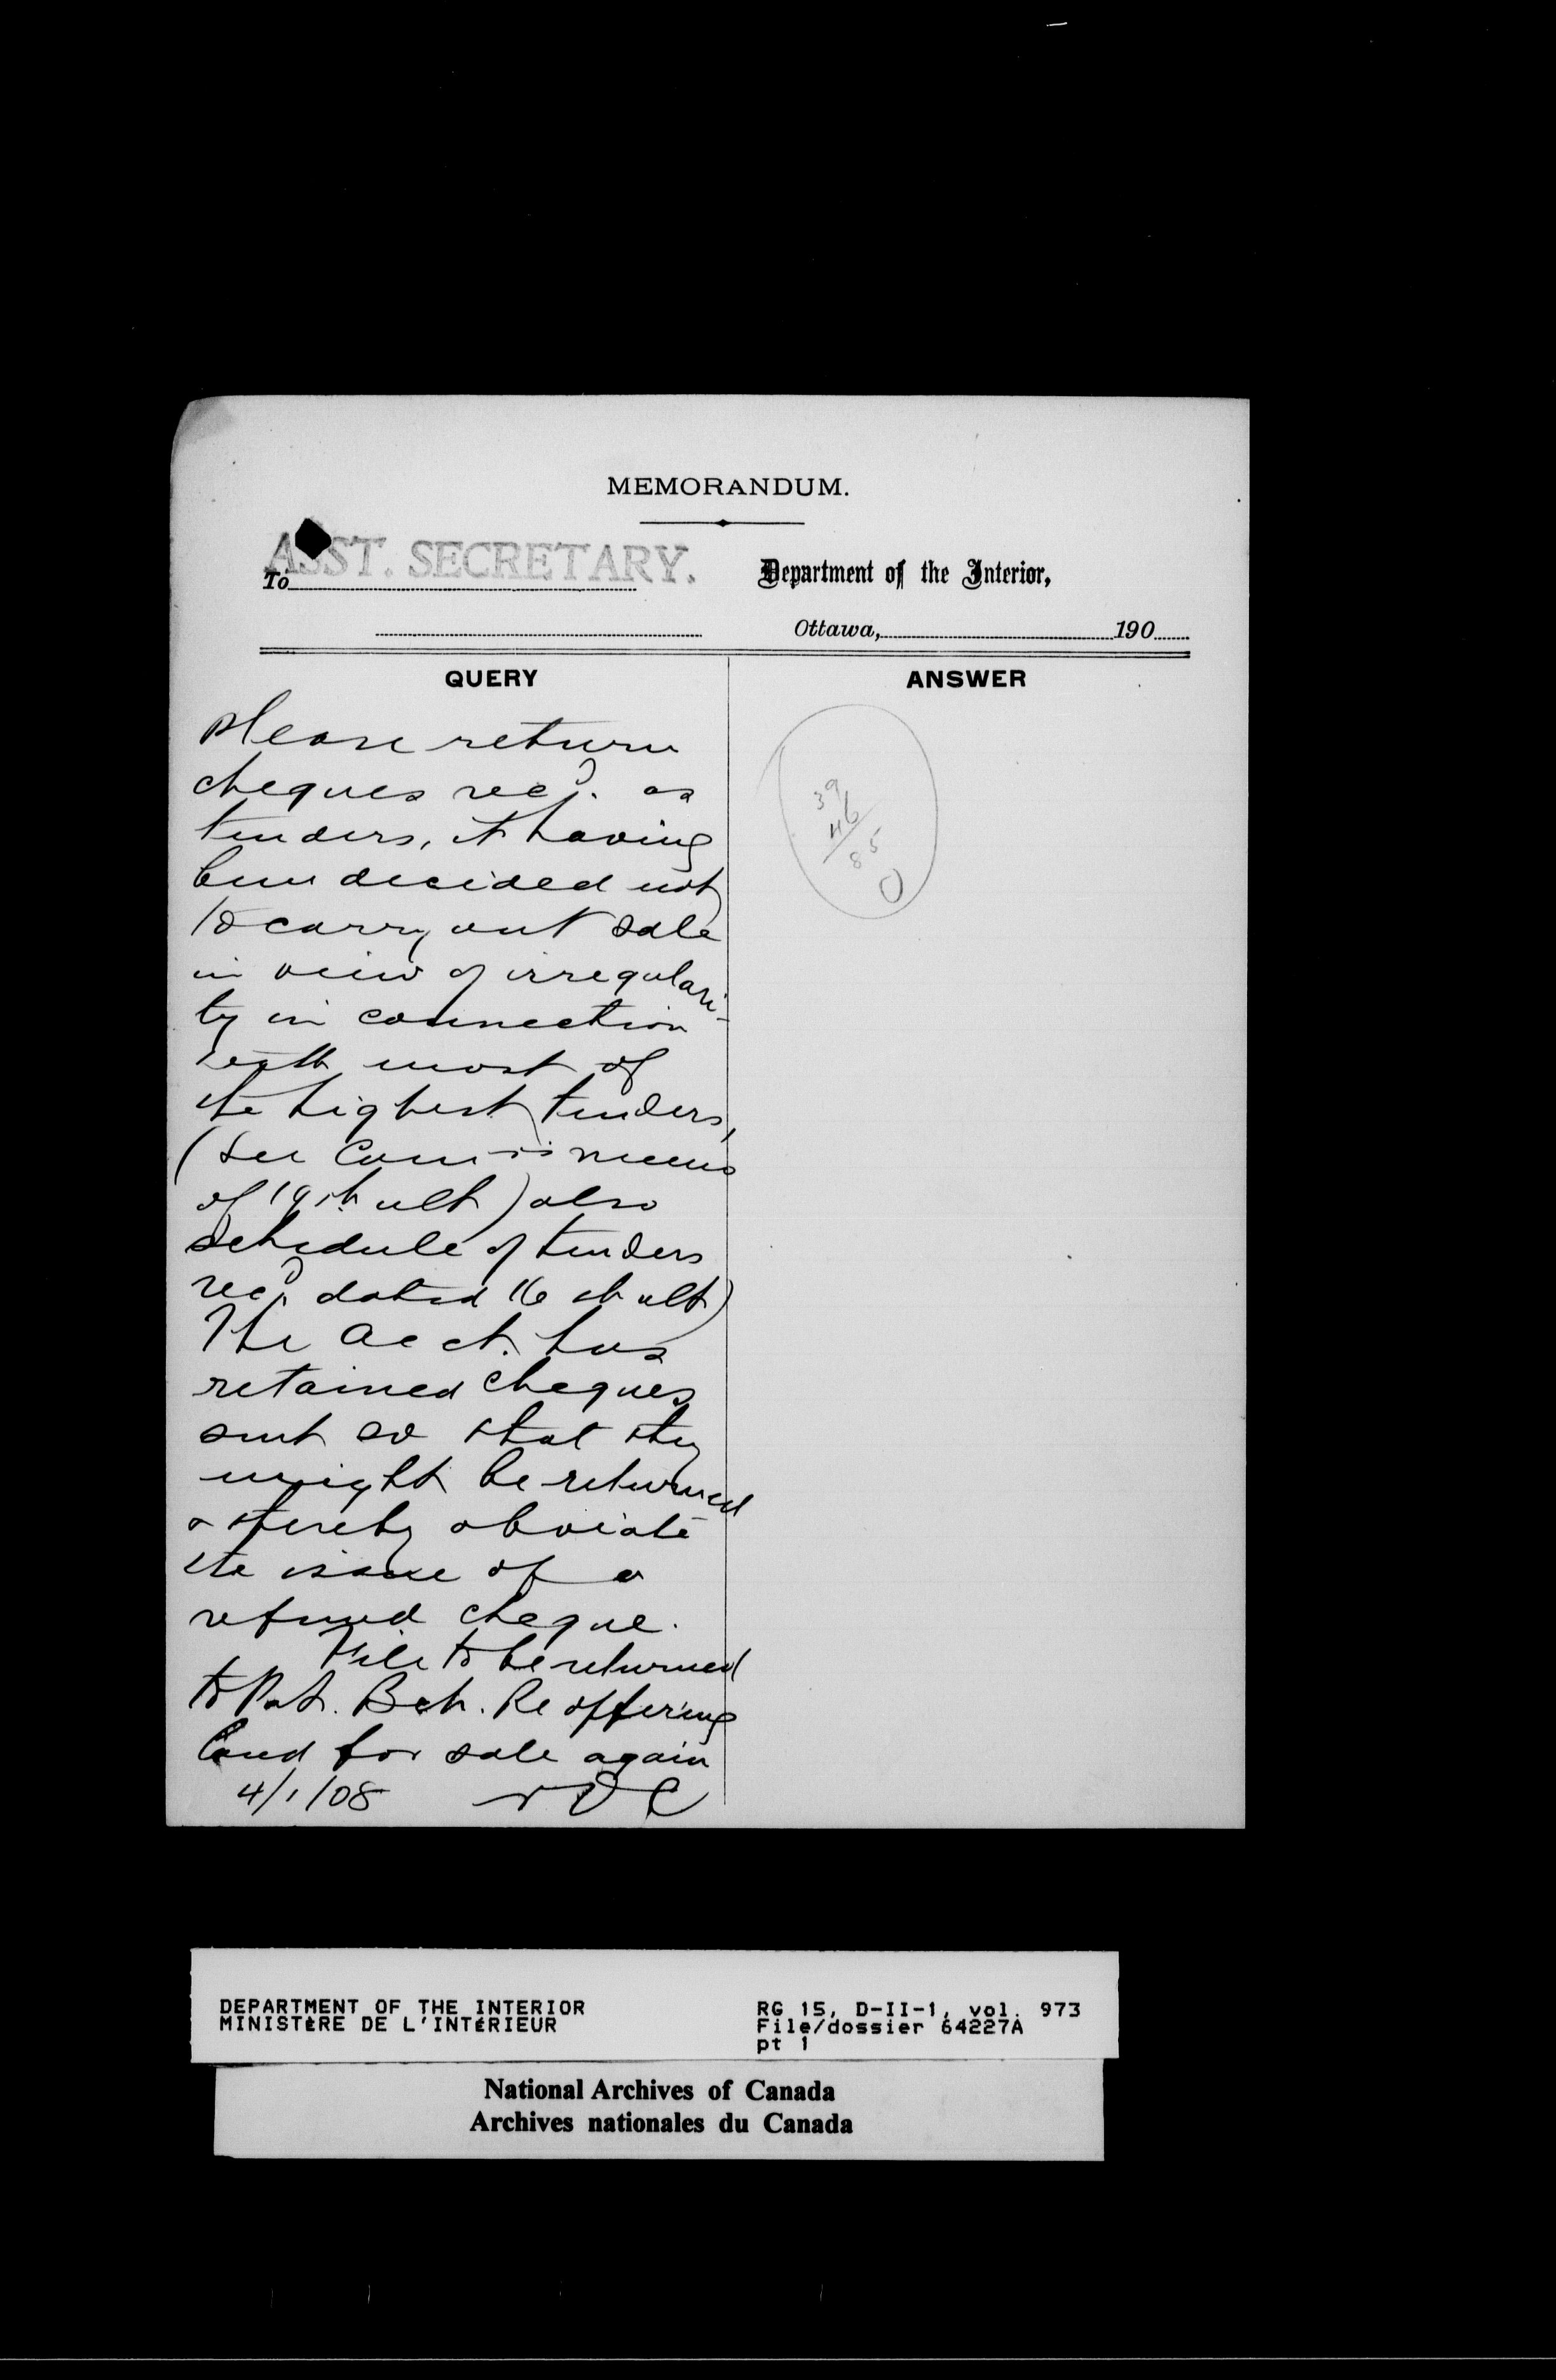 MEMORANDUM.
ASST. SECRETARY.
To
Department of the Interior,
Ottawa, 190
QUERY
ANSWER
Please return
cheques rec'd. as
tenders, it having
been decided not
to carry out sale
in view of irregulari-
ty in connection
with most of
the highest tenders,
(See Com'r's memo
of 19th ult) also
schedule of tenders
rec'd dated 16th ult)
The Acct. has
retained cheques
sent so that they
might be returned
& thereby obviate
the issue of a
refund cheque.
File to be returned
to Pat. Bch. Re offering
land for sale again
4/1/08
39
46
85
DEPARTMENT OF THE INTERIOR
MINISTÈRE DE L'INTÉRIEUR
RG 15, D-II-1, vol. 973
File/dossier 64227A
pt 1
National Archives of Canada
Archives nationales du Canada